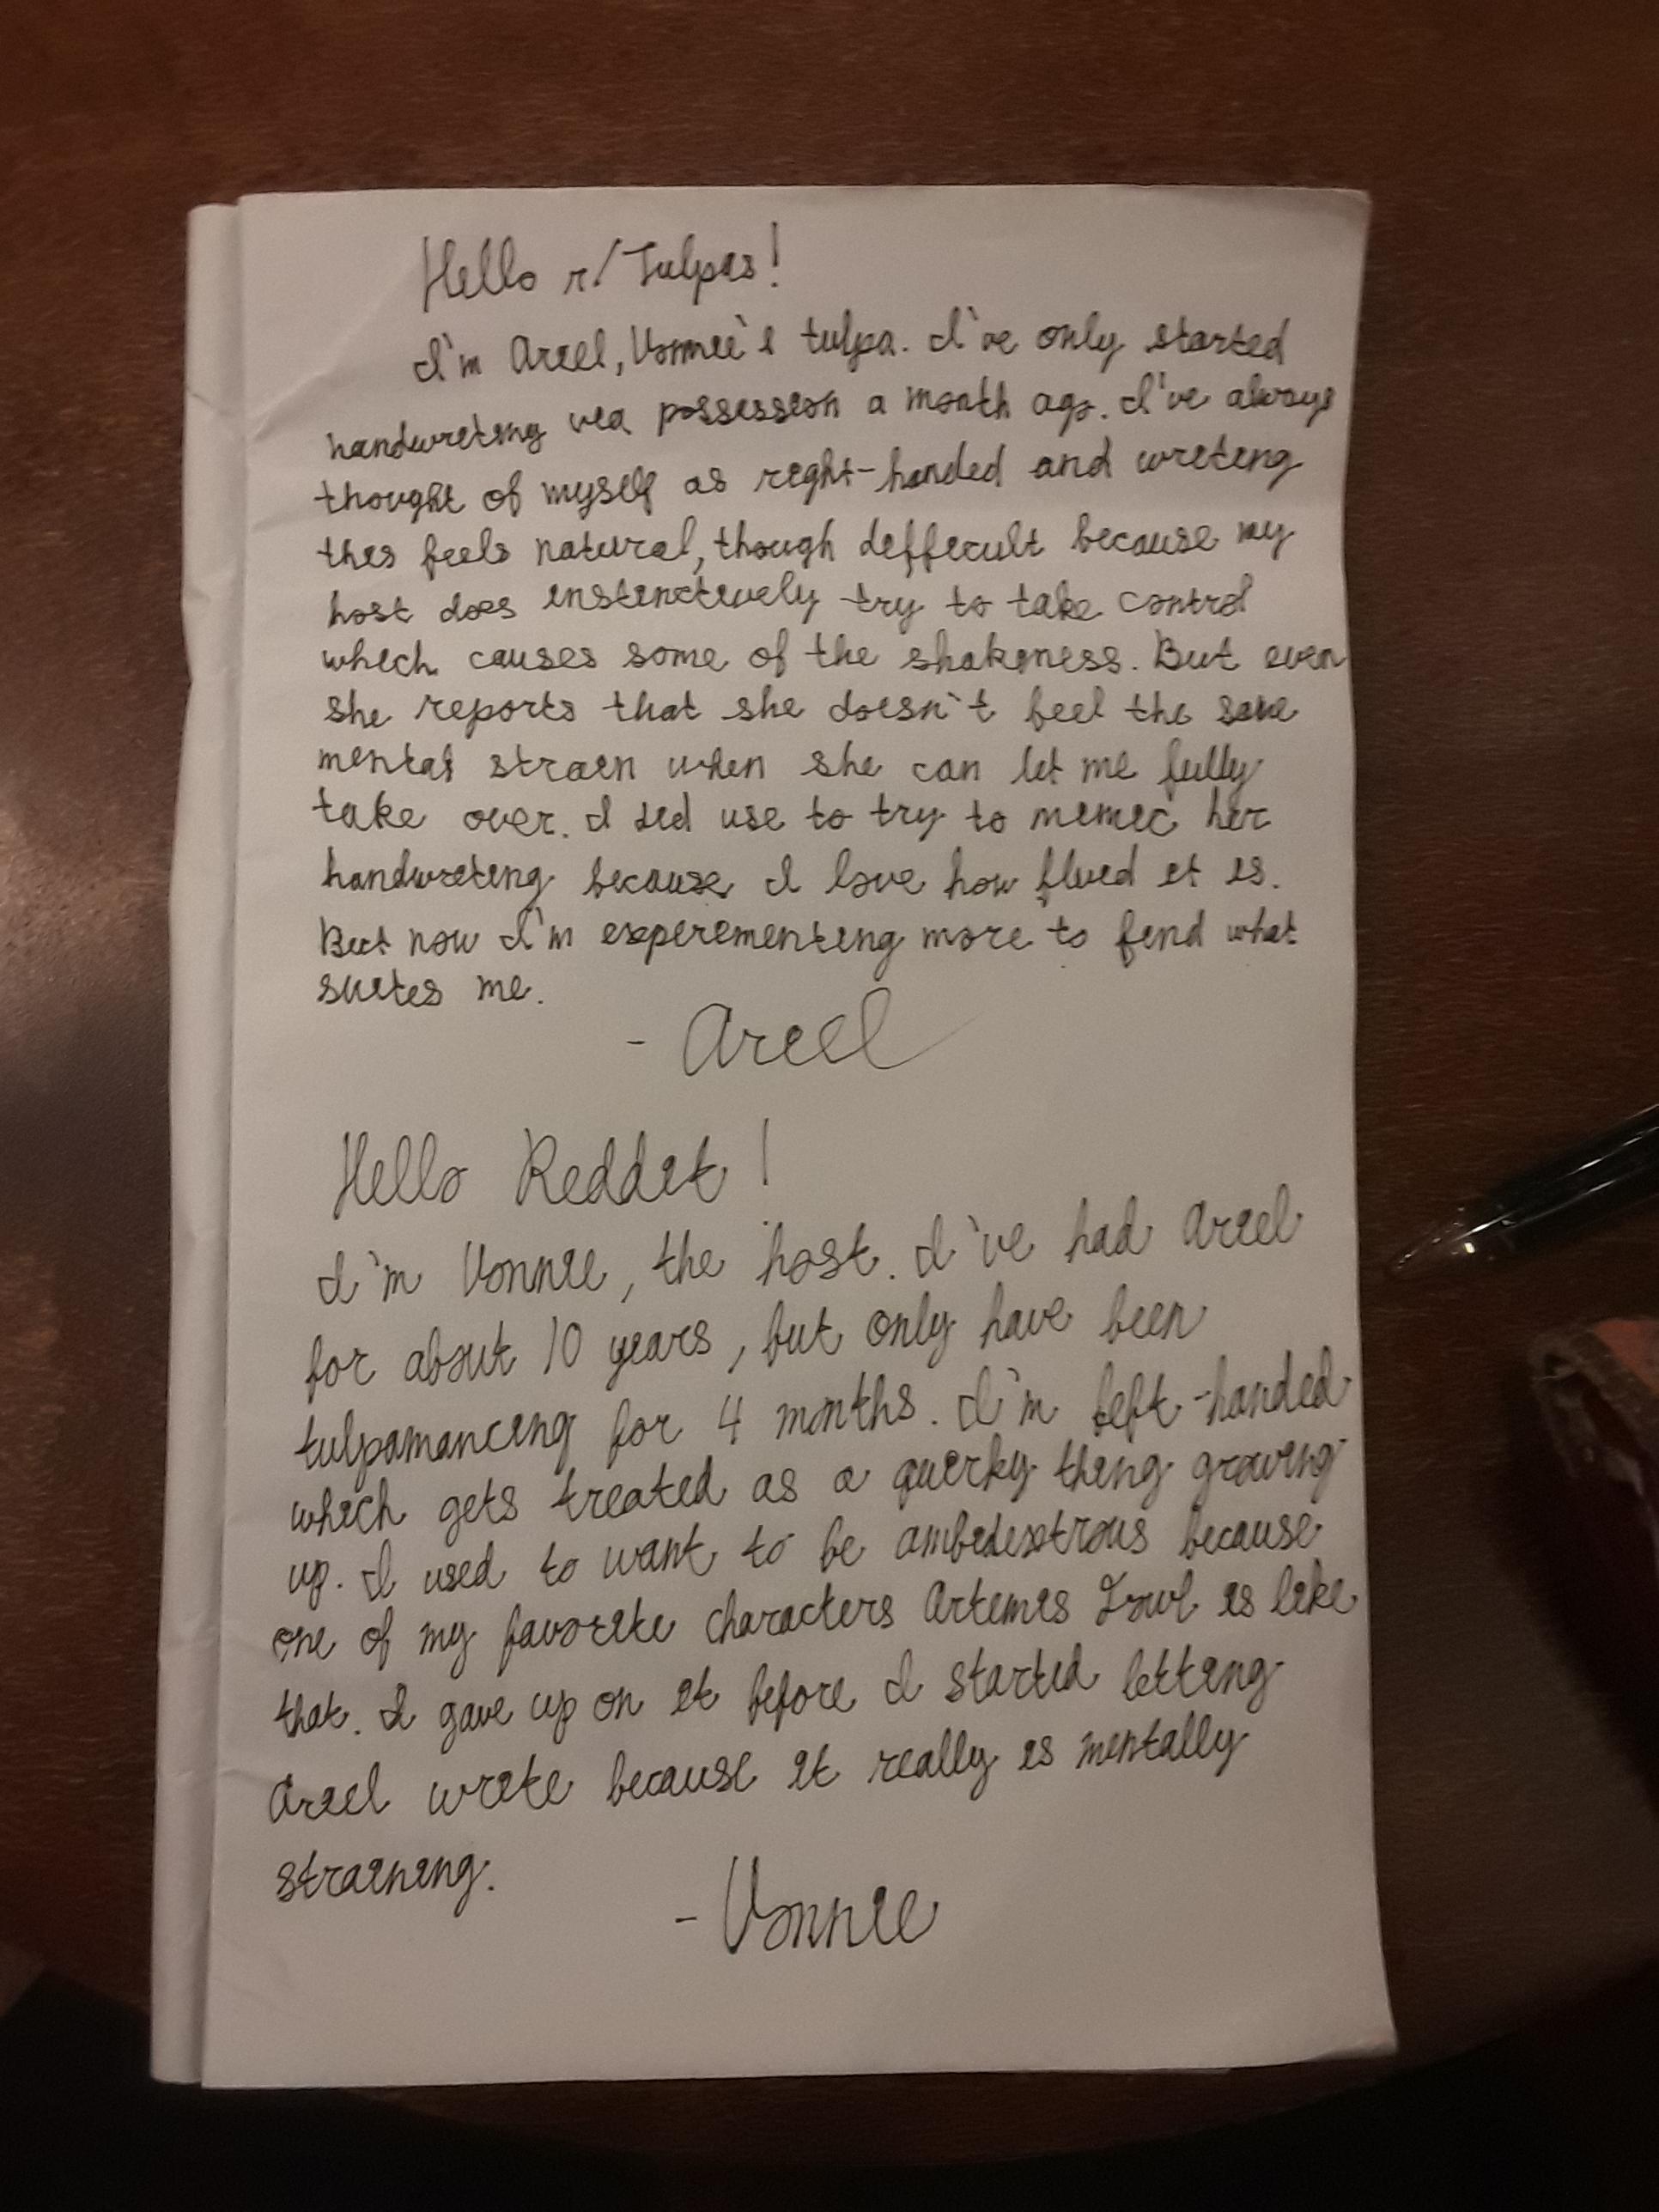 Hello r/Tulpas!
I'm Ariel, Vonnie's tulpa. I've only started
handwriting via possession a month ago. I've always
thought of myself as right-handed and writing
this feels natural, though difficult because my
host does instinctively try to take control
which causes some of the shakiness. But even
she reports that she doesn't feel the same
mental strain when she can let me fully
take over. I did use to try to mimic her
handwriting because I love how fluid it is.
But now I'm experimenting more to find what
suites me.
- Ariel
Hello Reddit!
I'm Vonnie, the host. I've had Ariel
for about 10 years, but only have been
tulpamancing for 4 months. I'm left-handed
which gets treated as a quirky thing growing
up. I used to want to be ambidextrous because
one of my favorite characters Artemis Fowl is like
that. I gave up on it before I started letting
Ariel write because it really is mentally
straining.
- Vonnie